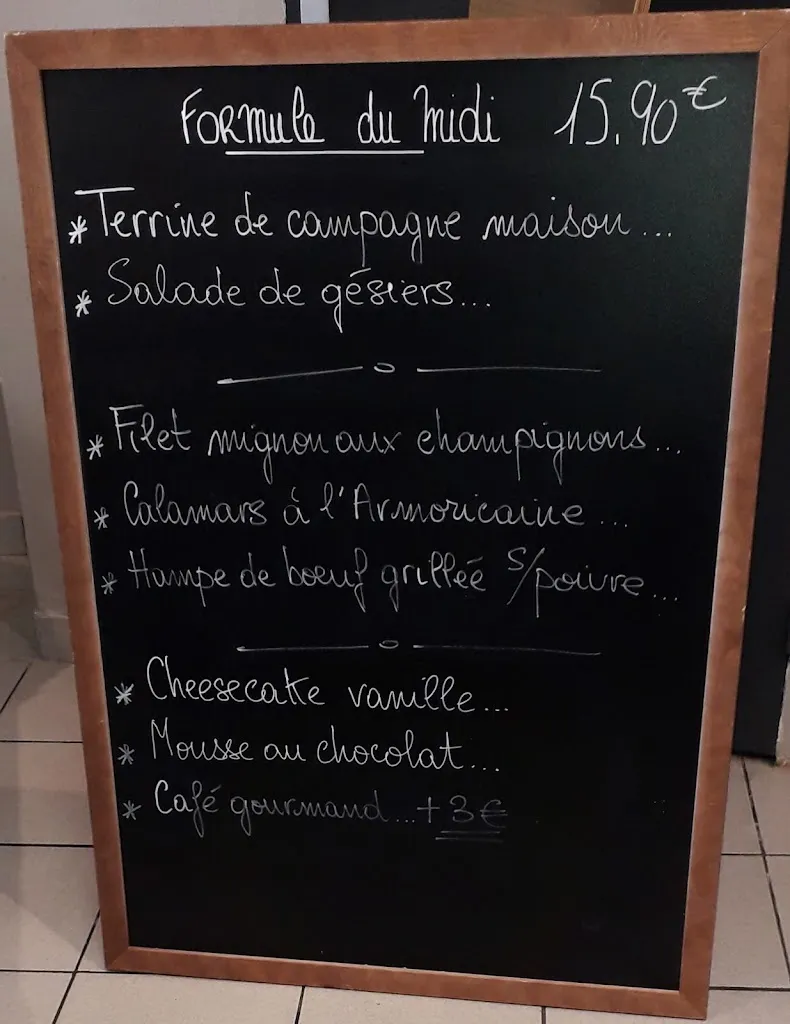 Formule du midi 15.90€
* Terrine de campagne maison...
* Salade de gésiers...
* Filet mignon aux champignons...
* Calamars à l'Armoricaine...
* Hampe de boeuf grillée s/poivre...
* Cheesecake vanille...
* Mousse au chocolat...
* Café gourmand...+3€